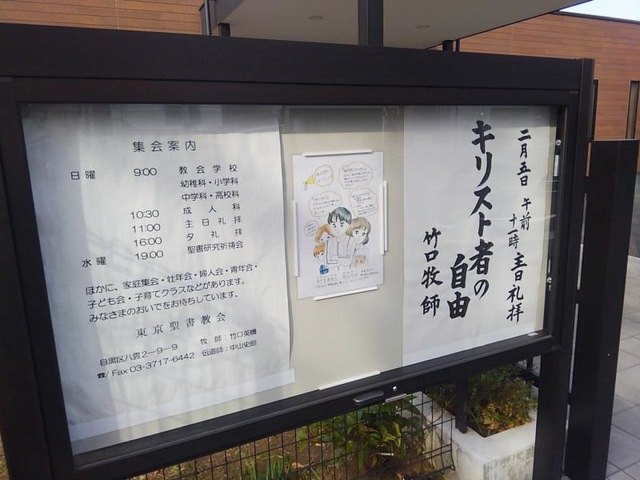 集会案内
日曜 9:00 教会学校
幼稚科・小学科
中学科・高校科
10:30 成人科
11:00 主日礼拝
16:00 夕礼拝
水曜 19:00 聖書研究祈祷会
ほかに、家庭集会・壮年会・婦人会・青年会・
子ども会・子育てクラスなどがあります。
みなさまのおいでをお待ちしています。
東京聖書教会
目黒区八雲2－9－9 牧師：竹口美機
☎/Fax 03-3717-6442 伝道師：中山史郎
二月五日 午前十一時 主日礼拝
キリスト者の自由
竹口牧師